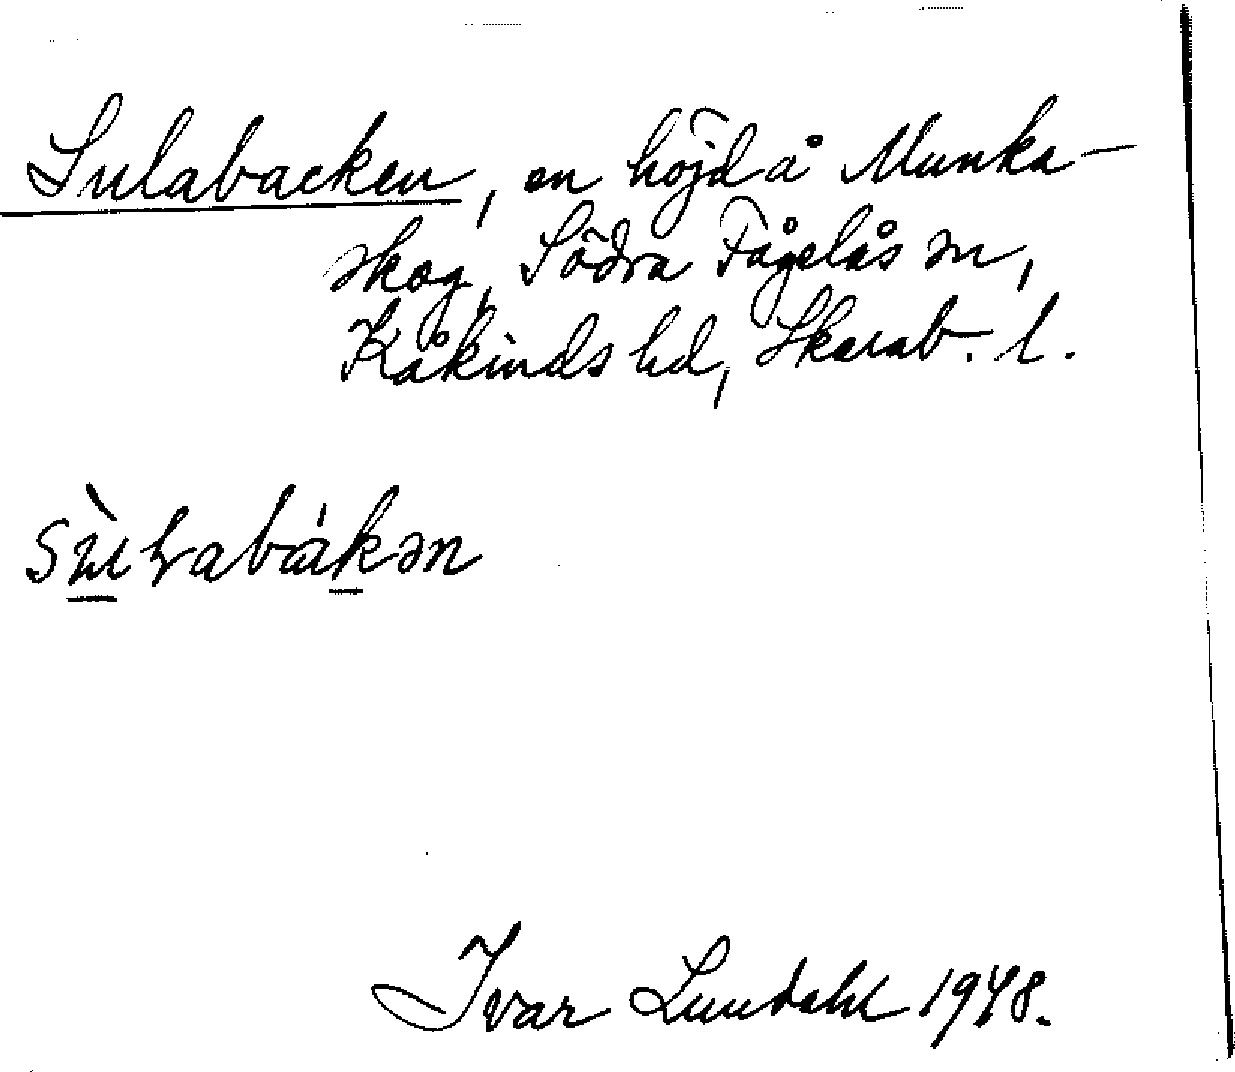 Sulabacken, en höjd å Munka-
skog, Södra Fågelås sn,
Kåkinds hd, Skarab. l.
Ivar Lundahl 1948.